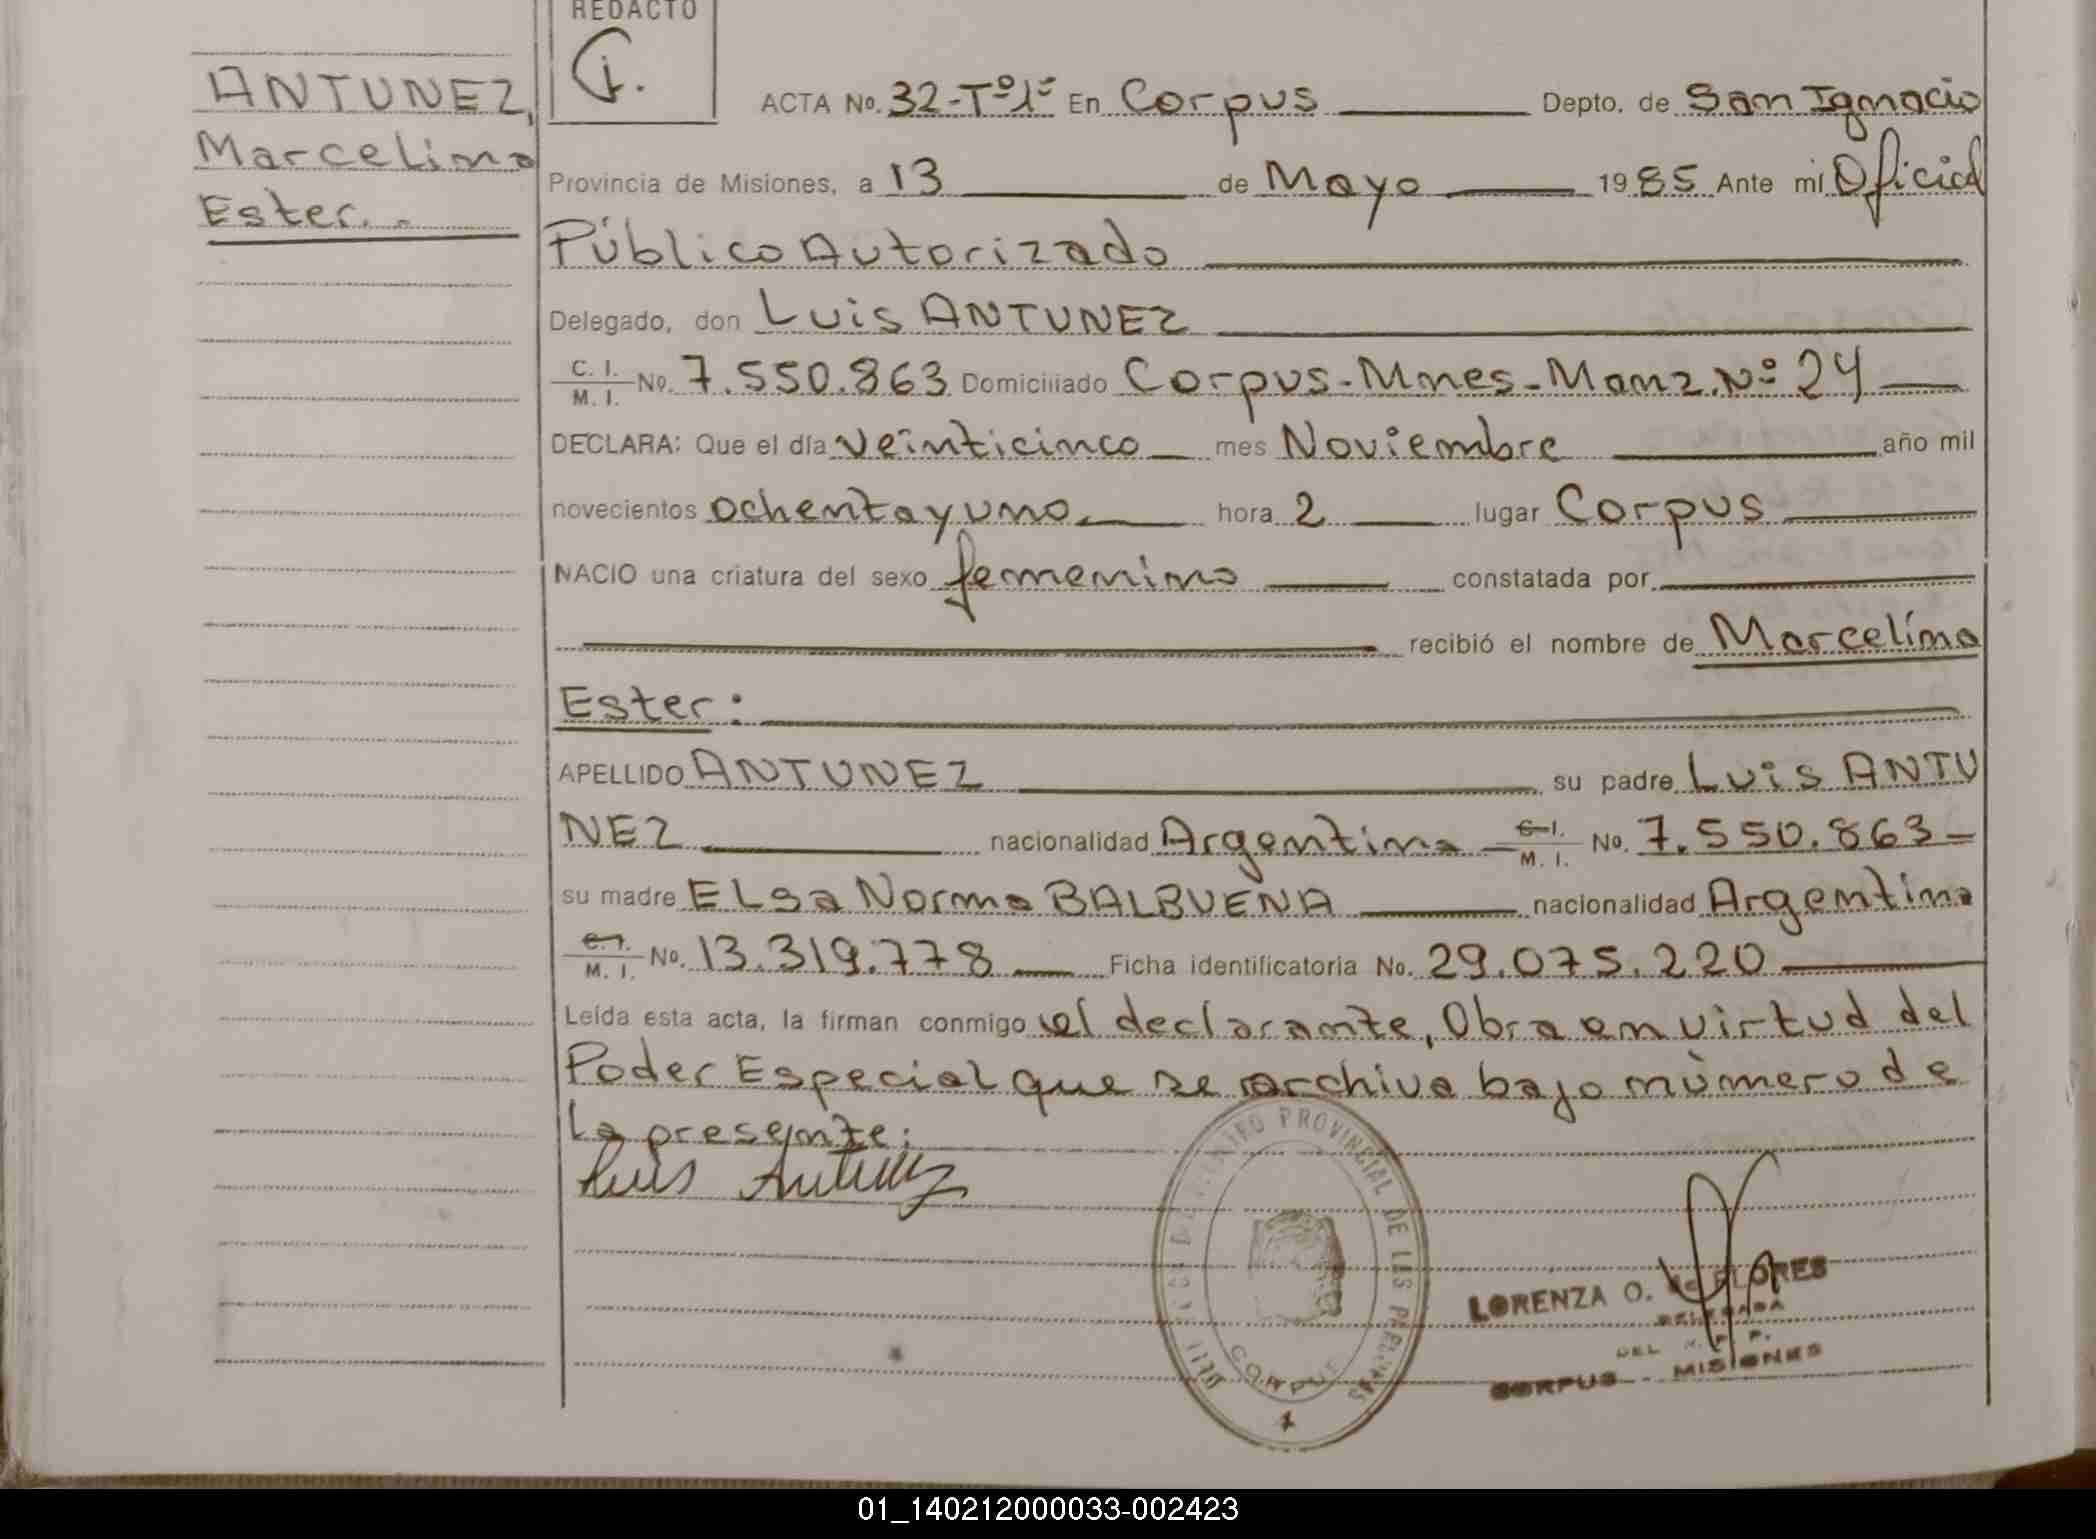 REDACTO
ANTUNEZ,
Marcelina
Ester..
ACTA No. 32-Tº1º En Corpus Depto. de San Ignacio
Provincia de Misiones, a 13 de Mayo 1985 Ante mí Oficial
Público Autorizado
Delegado, don Luis ANTUNEZ
C. I.
M. I. No. 7.550.863 Domiciliado Corpus-Mnes-Manz.Nº 24
DECLARA: Que el día veinticinco mes Noviembre año mil
novecientos ochenta y uno hora 2 lugar Corpus
NACIO una criatura del sexo femenino constatada por
recibió el nombre de Marcelina
Ester:
APELLIDO ANTUNEZ su padre Luis ANTU
NEZ nacionalidad Argentina C. I.
M. I. No. 7.550.863
su madre ELsa Norma BALBUENA nacionalidad Argentina
C. I.
M. I. No. 13.319.778 Ficha identificatoria No. 29.075.220
Leída esta acta, la firman conmigo el declarante, Obra en virtud del
Poder Especial que se archiva bajo nùmero de
La presente:
Luis Antunez
PROVINCIAL DE LAS PERSONAS
CORPUS
LORENZA O. de FLORES
DELEGADA
DEL R. P. P.
CORPUS - MISIONES
01_140212000033-002423